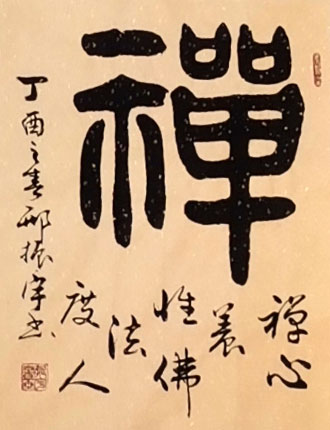 禪
禅心
养
性佛
法
度人
丁酉之春邢振宇书